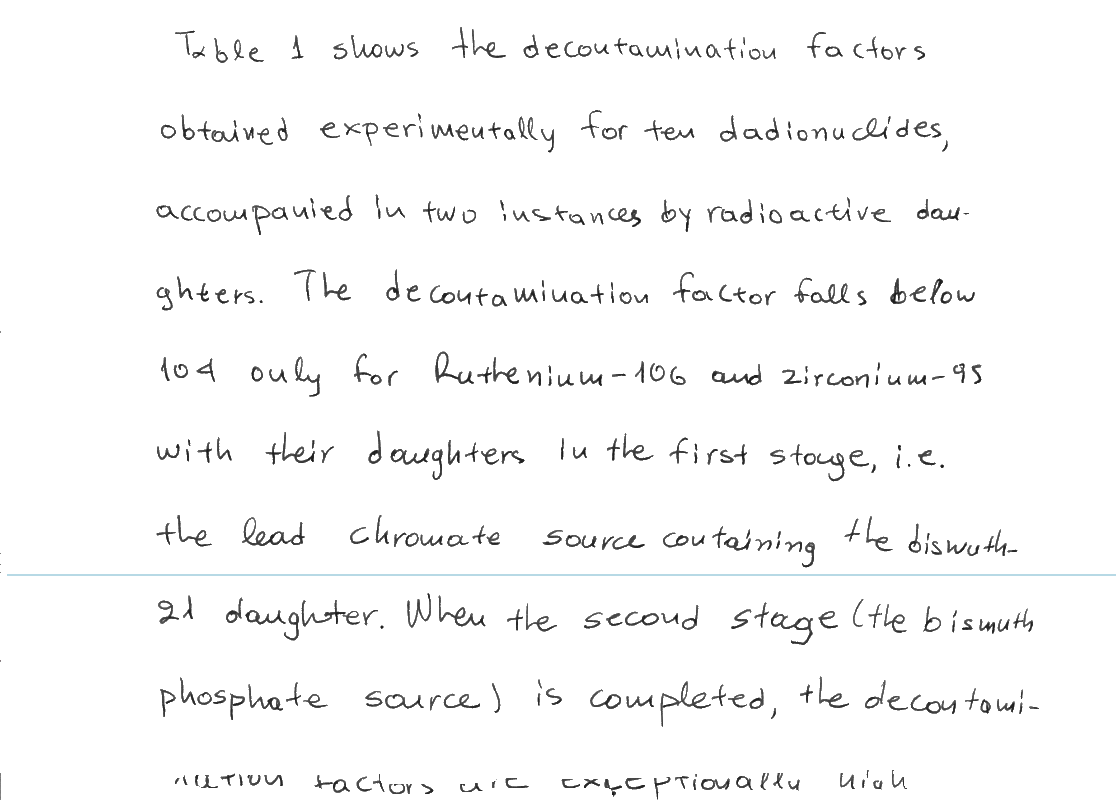 Table 1 shows the decontamination factors
obtained experimentally for ten dadionuclides,
accompanied in two instances by radioactive dau-
ghters. The decontamination factor falls below
104 only for Ruthenium-106 and zirconium-95
with their daughters in the first stage, i.e.
the lead chromate source containing the bismuth-
21 daughter. When the second stage (the bismuth
phosphate source) is completed, the decontami-
nation factors are exceptionally high